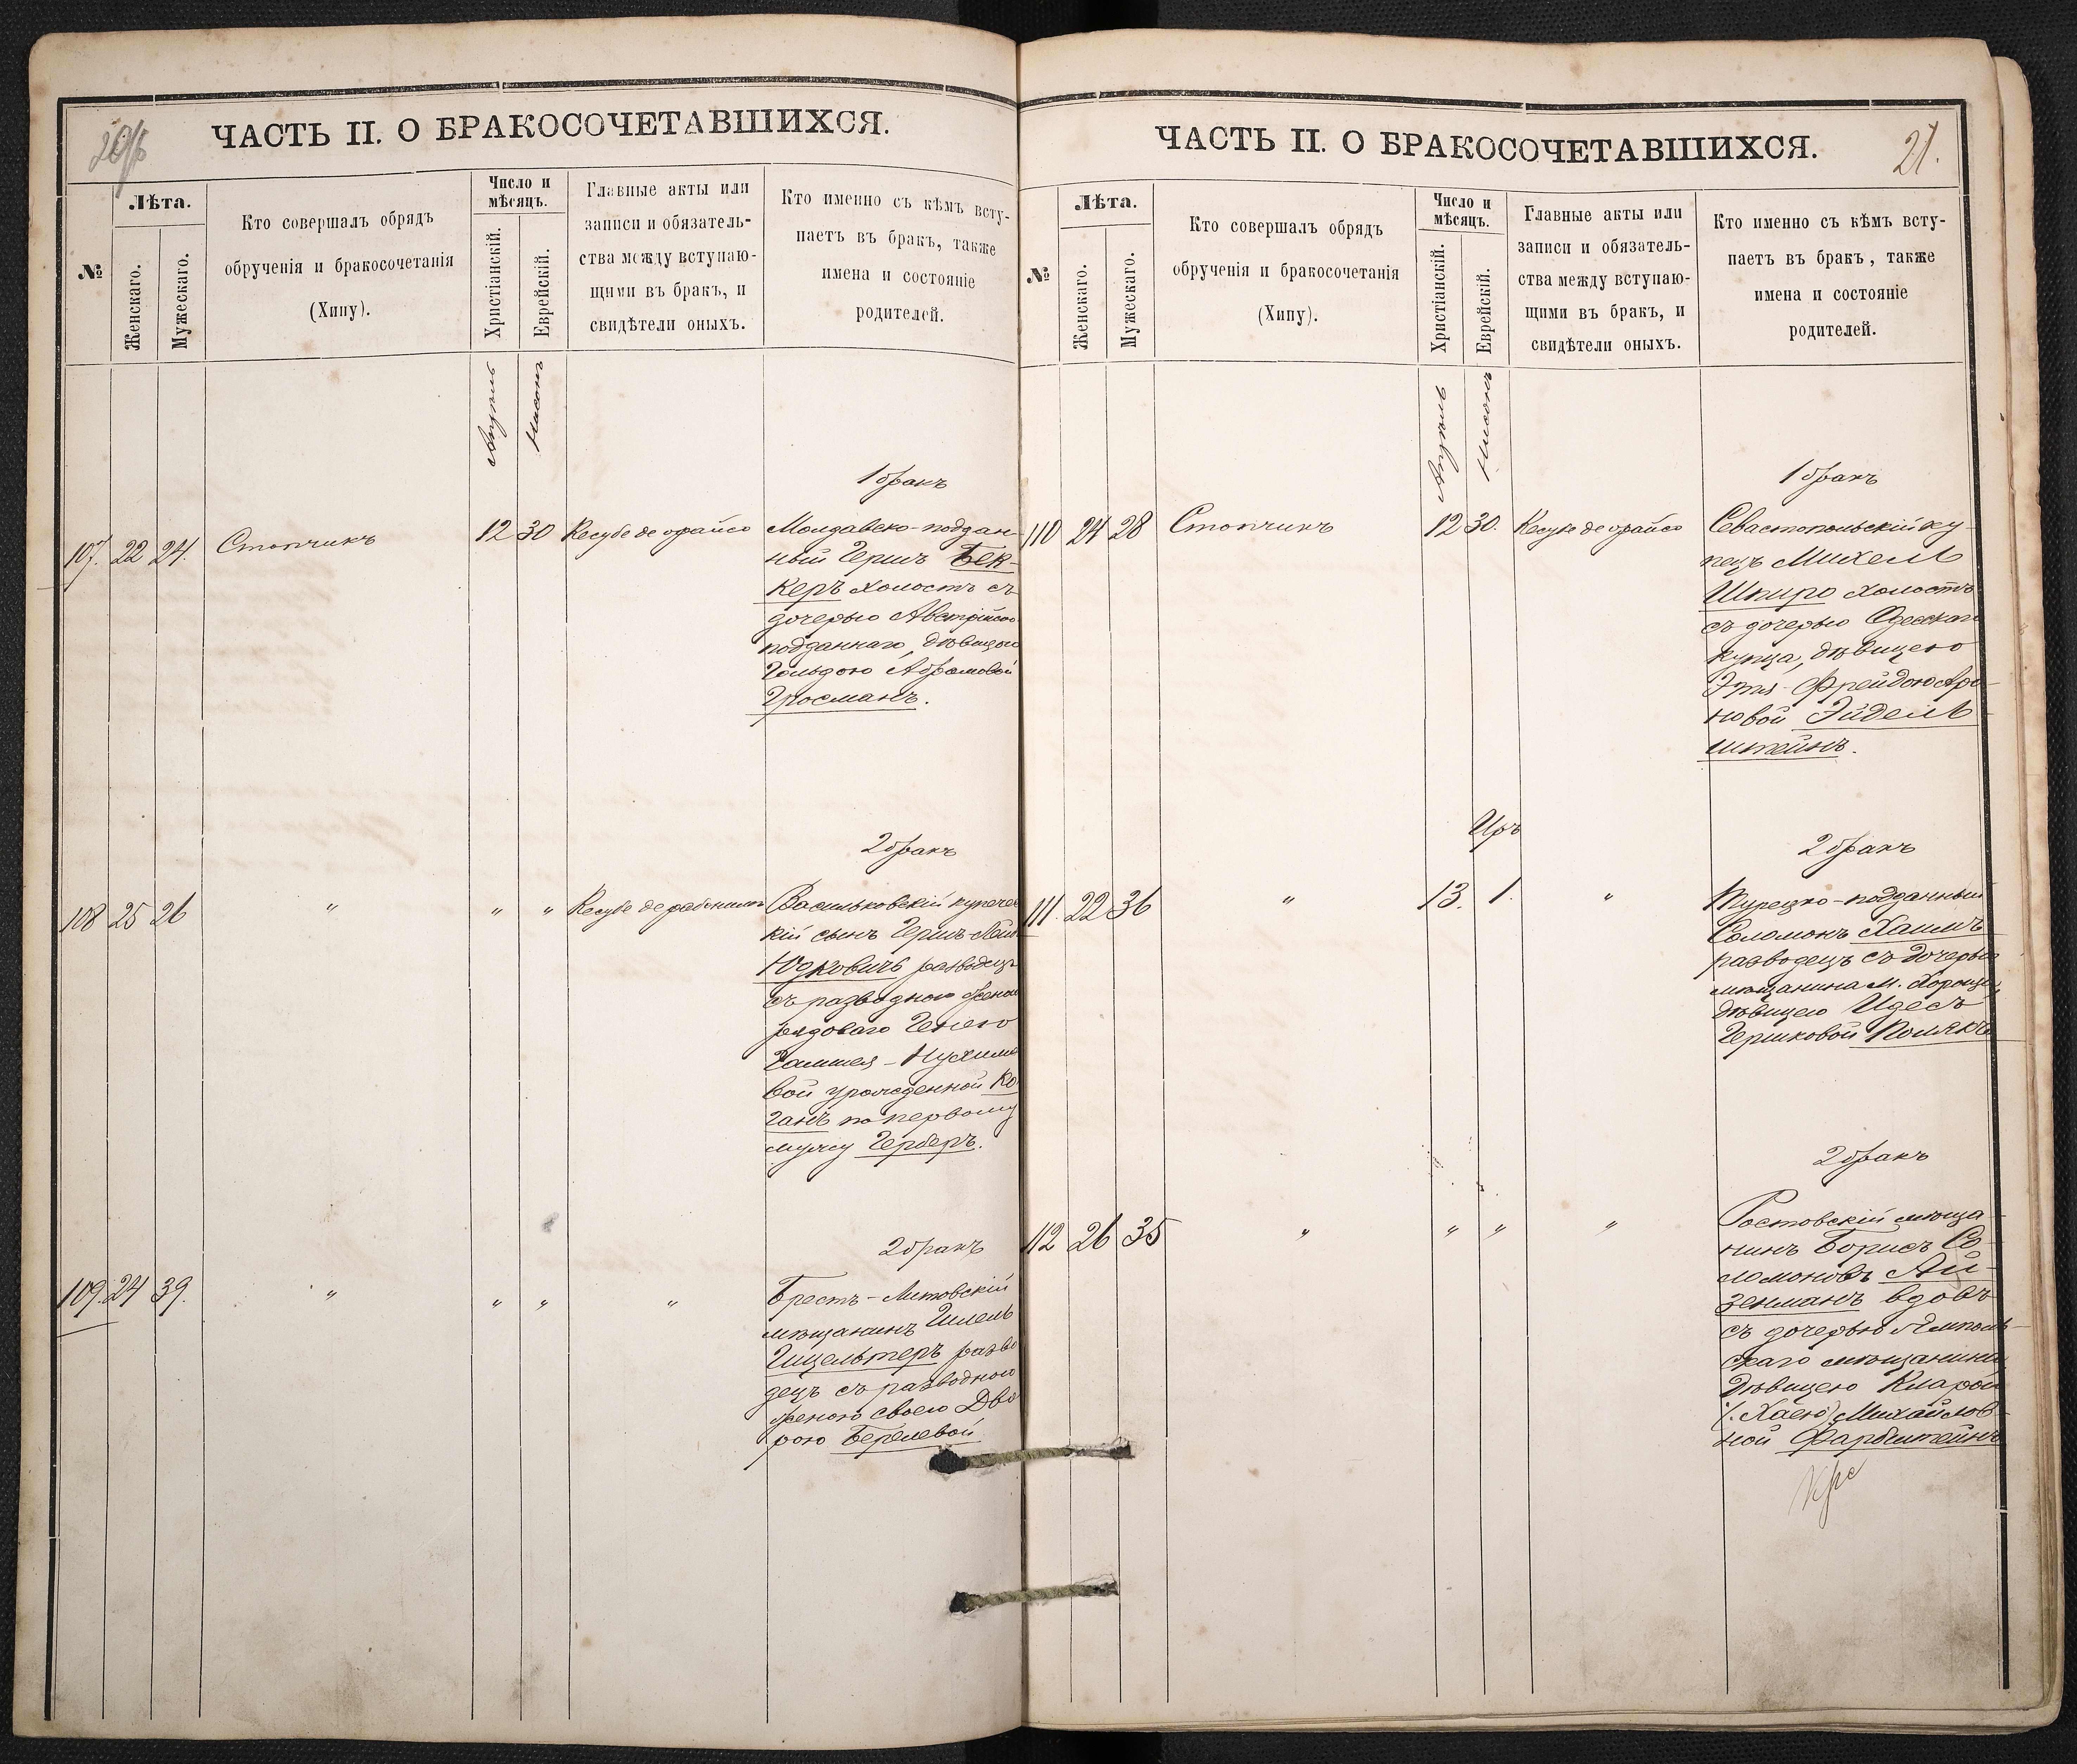 ЧАСТЬ II. О БРАКОСОЧЕТАВШИХСЯ.
№
Лѣта.
Женскаго.
Мужескаго.
Кто совершалъ обрядъ
обрученія и бракосочетанія
(Хипу).
Число и
мѣсяцъ.
Христіанскій.
Еврейскій.
Главные акты или
записи и обязатель-
ства между вступаю-
щими въ бракъ, и
свидѣтели оныхъ.
Кто именно съ кѣмъ всту-
паетъ въ бракъ, также
имена и состояніе
родителей.
Апрель
Нисонъ
1 бракъ
107. 22 24. Стопчикъ 12 30 Кесубе де орайсо
Молдавско-поддан-
ный Гершъ Бек-
керъ холостъ съ
дочерью Австрійско
подданнаго, дѣвицею
Гольдою Абрамовой
Гросманъ.
2 бракъ
108 25 26 " " " Кесубе де рабонимъ
Васильковскій купечес
кій сынъ Гершъ-
Юдковичъ разводецъ
съ разводною женою
рядоваго Генею
Нухимо
вой урожденной Ко-
ганъ по первому
мужу Герберъ.
2 бракъ
109. 24 39. " " " "
Брестъ-Литовскій
мѣщанинъ Шлема
разво
децъ съ разводною
женою своею Дво
рою Берелевой
ЧАСТЬ II. О БРАКОСОЧЕТАВШИХСЯ.
21.
№
Лѣта.
Женскаго.
Мужескаго.
Кто совершалъ обрядъ
обрученія и бракосочетанія
(Хипу).
Число и
мѣсяцъ.
Христіанскій.
Еврейскій.
Главные акты или
записи и обязатель-
ства между вступаю-
щими въ бракъ, и
свидѣтели оныхъ.
Кто именно съ кѣмъ всту-
паетъ въ бракъ, также
имена и состояніе
родителей.
Апрель
Нисонъ
1 бракъ
110 24 28 Стопчикъ 12 30. Кесубе де орайсо
Севастопольскій ку-
пецъ Михель
Шпиро холостъ
съ дочерью Одесскаго
купца, дѣвицею
Этя-Фрейдою Аро-
новой Эйдель
штейнъ.
Иръ
2 бракъ
111. 22 36 " 13. 1. "
Турецко-подданный
Соломонъ Хаимъ
разводецъ съ дочерью
мѣщанина м. Хороще
дѣвицею Идесъ
Гершковой Полякъ
2 бракъ
112 26 35 " " " "
Ростовскій мѣща
нинъ Борисъ Со-
ломоновъ Ай-
зенманъ вдовъ
съ дочерью Ямполь-
скаго мѣщанина
дѣвицею Кларой
(Хаею) Михайлов-
ной Фарбштейнъ